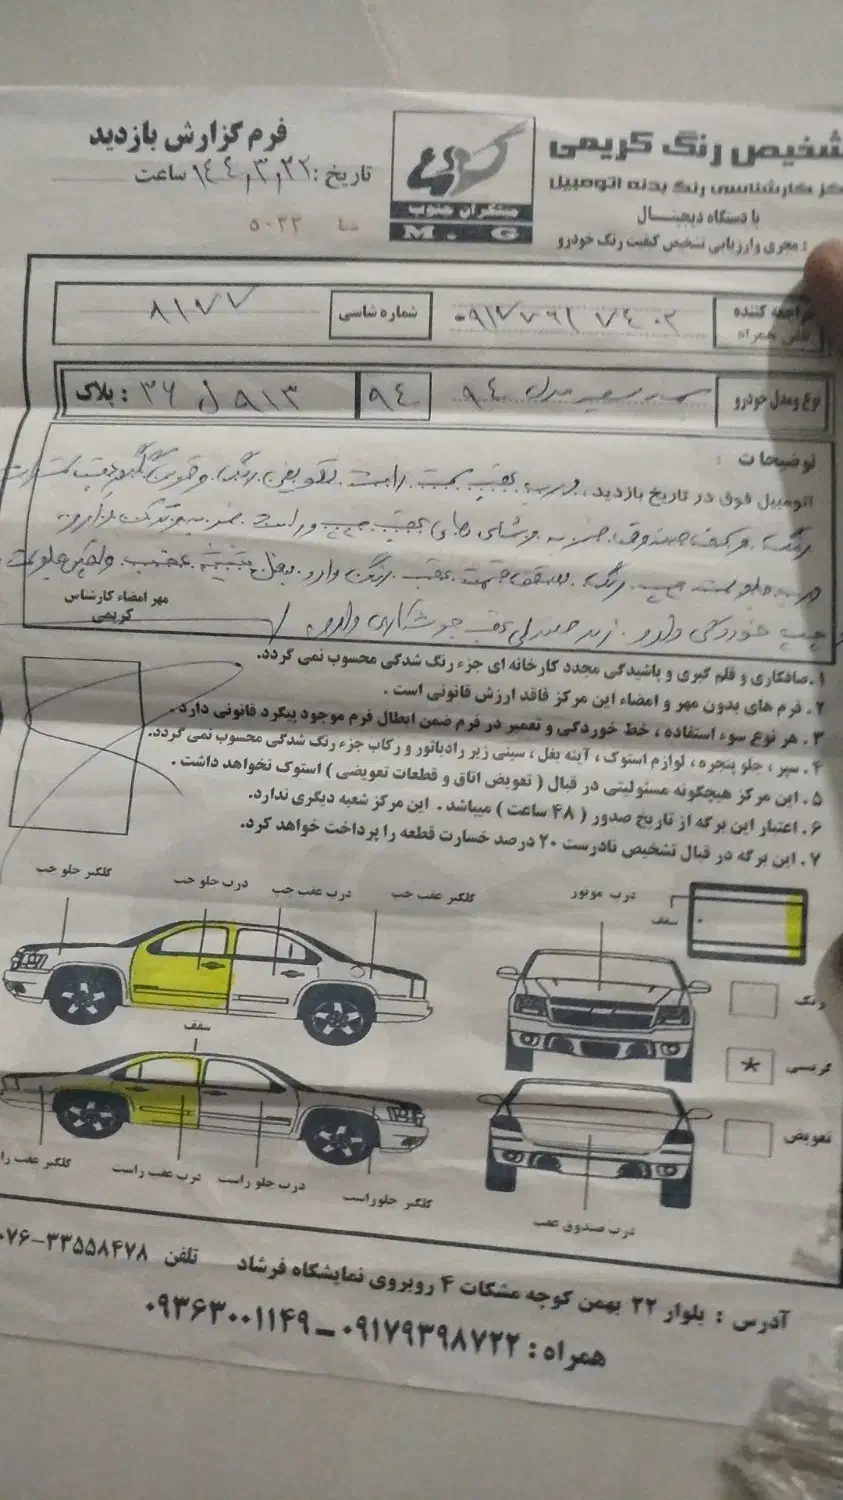 تشخیص رنگ کریمی
مرکز کارشناسی رنگ بدنه اتومبیل
با دستگاه دیجیتال
مجری وارزیابی تشخیص کیفیت رنگ خودرو
هشتگران جنوب
M. G
فرم گزارش بازدید
تاریخ : ۱۴۰۴,۳,۲۲ ساعت
۵۰۳۳
مراجعه کننده
تلفن همراه
۰۹۱۷۷۹۱۷۴۰۲
شماره شاسی
۸۱۷۷
نوع ومدل خودرو
سمند سفید مدل ۹۴
۹۴
پلاک : ۳۶ ل ۹۱۳
توضیحات :
اتومبیل فوق در تاریخ بازدید : درب عقب سمت راست تعویض رنگ و
رنگ و کف صندوق
درب جلو سمت چپ رنگ سقف قسمت عقب رنگ دارد بغل شیشه عقب
چپ خوردگی دارد . زیر صندلی عقب جوشکاری دارد
مهر امضاء کارشناس
کریمی
۱. صافکاری و قلم گیری و پاشیدگی مجدد کارخانه ای جزء رنگ شدگی محسوب نمی گردد.
۲. فرم های بدون مهر و امضاء این مرکز فاقد ارزش قانونی است .
۳. هر نوع سوء استفاده ، خط خوردگی و تعمیر در فرم ضمن ابطال فرم موجود پیگرد قانونی دارد .
۴. سپر ، جلو پنجره ، لوازم استوک ، آینه بغل ، سینی زیر رادیاتور و رکاب جزء رنگ شدگی محسوب نمی گردد.
۵. این مرکز هیچگونه مسئولیتی در قبال ( تعویض اتاق و قطعات تعویضی ) استوک نخواهد داشت .
۶. اعتبار این برگه از تاریخ صدور ( ۴۸ ساعت ) میباشد . این مرکز شعبه دیگری ندارد.
۷. این برگه در قبال تشخیص نادرست ۲۰ درصد خسارت قطعه را پرداخت خواهد کرد.
گلگیر جلو چپ
درب جلو چپ
درب عقب چپ
گلگیر عقب چپ
درب موتور
سقف
رنگ
سقف
گریسی
*
تعویض
گلگیر عقب راست
درب عقب راست
درب جلو راست
گلگیر جلوراست
درب صندوق عقب
آدرس : بلوار ۲۲ بهمن کوچه مشکات ۴ روبروی نمایشگاه فرشاد تلفن ۳۳۵۵۸۴۷۸-۰۷۶
همراه : ۰۹۱۷۹۳۹۸۷۲۲ - ۰۹۳۶۳۰۰۱۱۴۹